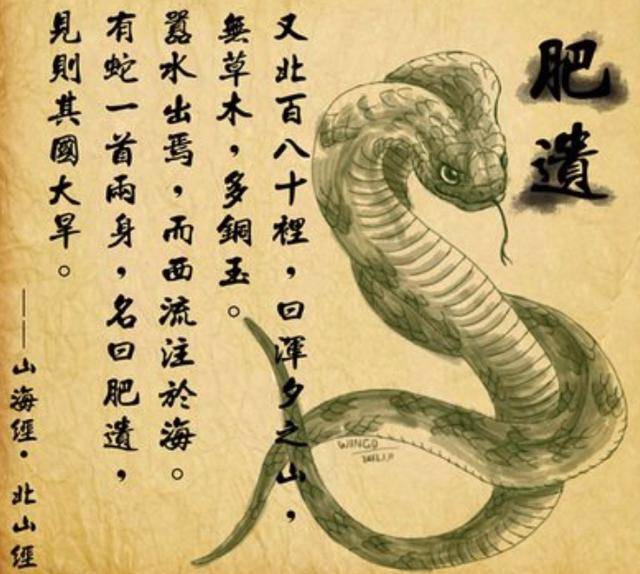 肥遺
又北百八十裡，曰渾夕之山，
無草木，多銅玉。
囂水出焉，而西流注於海。
有蛇一首兩身，名曰肥遺，
見則其國大旱。
——山海經·北山經
WINGO